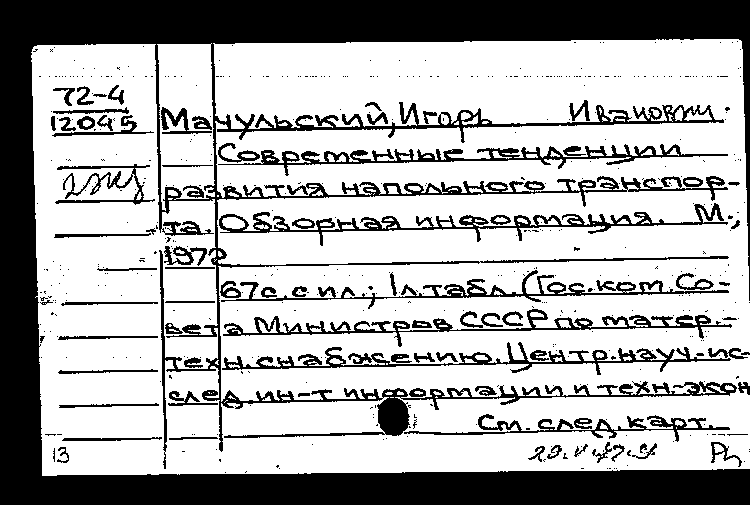 72-4
12045
Мачульский, Игорь Иванович.
Современные тенденции
развития напольного транспор-
та. Обзорная информация. М.,
1972
67с. с ил.; 1л. табл. (Гос. ком. Со-
вета Министров СССР по матер.-
техн. снабжению. Центр. науч.-ис-
след. ин-т информации и техн.-экон
См. след. карт.
13